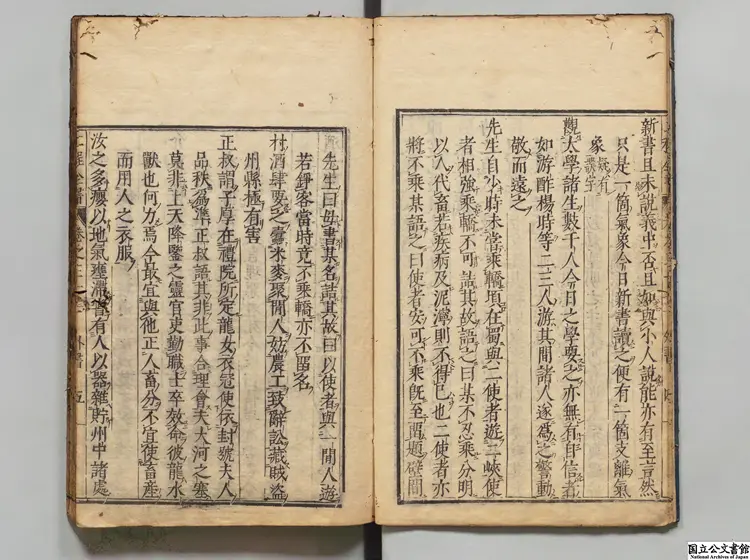 新書且未說義中否且如與小人說能亦有至言然
只是一箇氣象今日新書讀之便有一箇支離氣
象疑有羨字
觀太學諸生數千人今日之學要之亦無有自信者
如游酢楊時等二三人游其間諸人遂爲之警動
敬而遠之
先生自少時未嘗乘轎頃在蜀與二使者遊二峽使
者相強乘轎不可詰其故語之曰某不忍乘分明
以人代畜若疾病及泥濘則不得已也二使者亦
將不乘某語之曰使者安可不乘既至留題壁間
先生曰毋書某名詰其故曰以使者與一閒人遊
若錚客當時竟不乘轎亦不留名
村酒肆要之蠹米麥聚閒人妨農工致辭訟藏賊盜
州縣極有害
正叔謂子厚在禮院所定龍女衣冠使依封號夫人
品秩爲準正叔語其非此事合理會夫大河之塞
莫非上天降鑒之靈官吏勤職士卒效命彼龍水
獸也何力焉今最宜與他正人畜分不宜使畜產
而用人之衣服
汝之多癭以地氣壅滯嘗有人以器雜貯州中諸處
外書 五
国立公文書館
National Archives of Japan